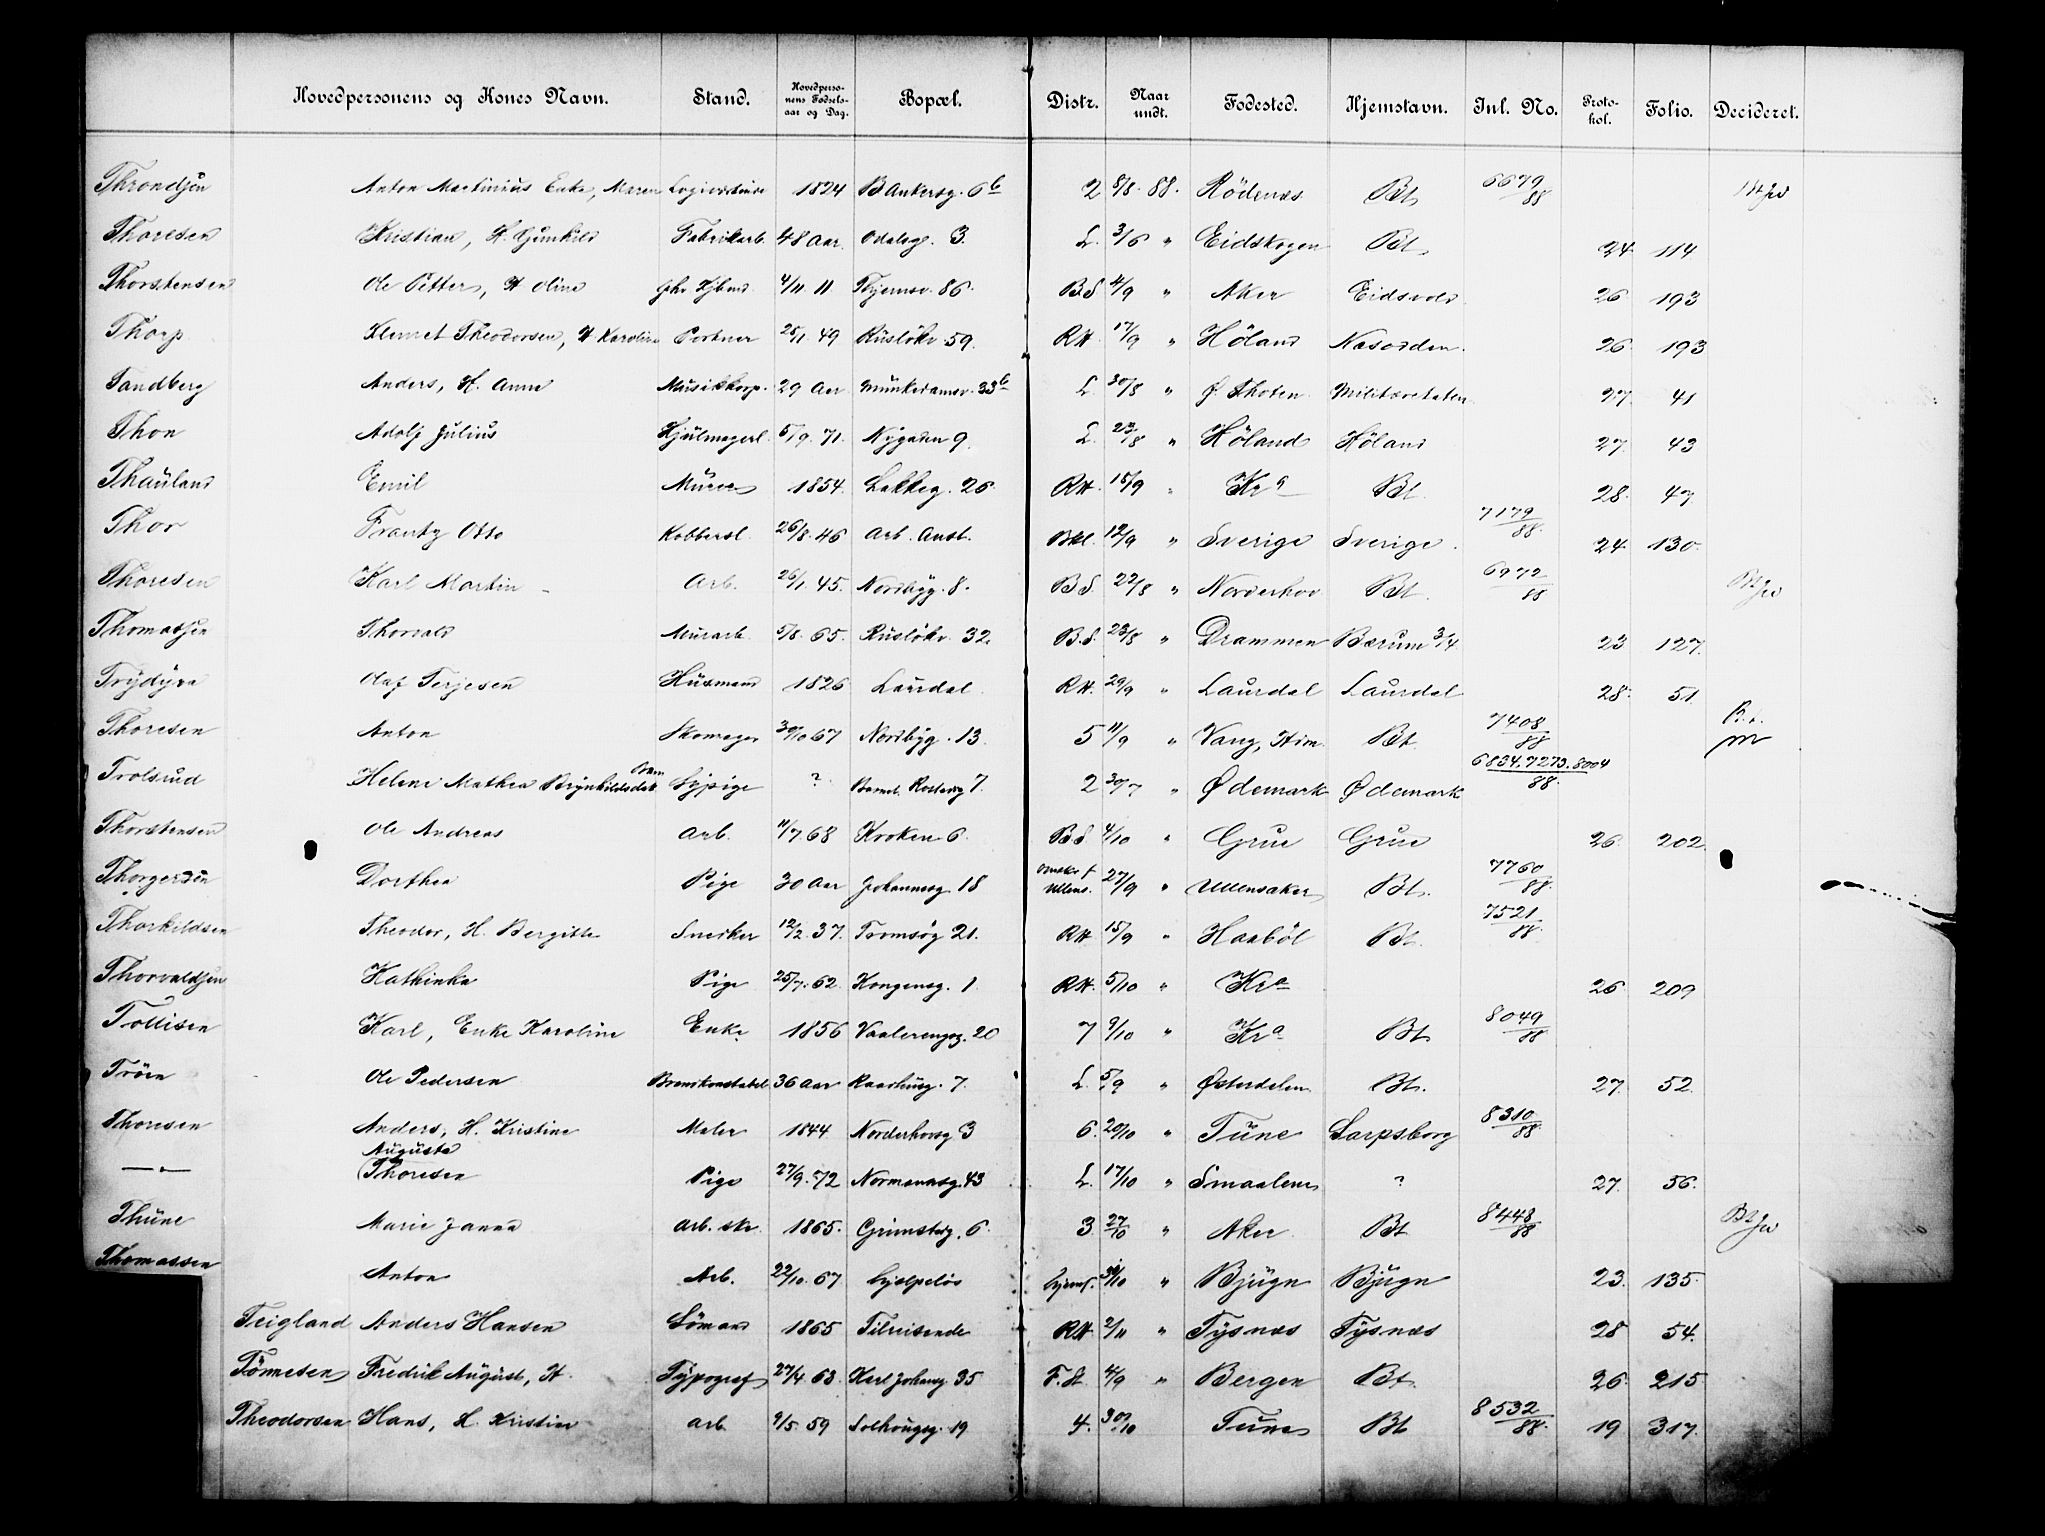 Hovedpersonens og Kones Navn. Stand. Hovedperso-nens Fødsels-aar og Dag. Bopæl. Distr. Naar undt. Fødested. Hjemstavn. Inl. No. Proto-kol. Folio. Decideret.
Throndsen Anton Martinius Enke, Maren 1824 Bankersg. 6b 2 8/8 88. Rödenæs Bt 6679/88
Thoresen Kristian, H. Gunhild Fabrikarb. 48 Aar. Odalsg. 3. L. 3/6 " Eidskogen Bt 24 114
Thorstensen Ole Petter, H Oline 4/11 11 86. B.S 4/9 " Aker Eidsvold 26 193
Thorp Klemet Theodorsen, H Karoline Portner 25/1 49 Rusløkv. 59. RH. 17/9 " Höland Næsodden. 26 193
Tandberg Anders, H. Anne Musikkorp. 29 Aar Munkedamsv. 33b L. 30/8 " Ø. Thoten Militæretaten 27. 41
Thon Adolf Julius Hjulmagerl. 5/9. 71. Nygaden 9. L. 23/8 " Höland Höland 27. 43
Thauland Emil Murer 1854. Lakkeg. 26. RH. 15/9 " Kra Bt. 28. 47
Thor Frantz Otto Kobbersl. 26/8. 46 Arb. Anst. Bkl. 12/9 " Sverige Sverige. 7179/88 24 130.
Thoresen Karl Martin Arb. 26/1. 45. Nordbyg. 8. B.S. 22/8 " Norderhov Bt. 6972/88
Thomassen Thorvald Murarb. 5/8. 65. Rusløkv. 32. B.S. 23/8 " Drammen Bærum 3/4 23 127.
Trydyra Olaf Terjesen Husmand 1826 Laurdal. RH. 29/9 " Laurdal Laurdal 28. 51
Thoresen Anton Skomager 30/10 67 Nordbyg. 13. 5 11/9 " Vang, Hdm. Bt 7408/88 B.t.
Trolsrud Helene Mathea Brynhildsdat. Barn ? 7. 2 30/7 " Ødemark Ødemark 6834.7273.8004/88.
Thorstensen Ole Andreas Arb. 11/7. 68 Kroken 6. B.S 4/10 " Grue Grue 26. 202
Thorgersen Dorthea Pige 30 Aar Johannesg. 18 27/9 " Ullensaker Bt. 7760/88.
Thorkildsen Theodor, H. Bergitte Snedker 12/2. 37. Tromsøg 21. RH. 15/9 " Haabøl Bt. 7521/88.
Thorvaldsen Kathinka Pige 25/7. 62. Kongensg. 1. RH. 5/10 " Kra 26 209
Tollisen Karl, Enke Karoline Enke. 1856 Vaalerengsg. 20 7 9/10 " Kra Bt 8049/88
Tröen Ole Pedersen Brandkonstabel 36 Aar Raadhusg. 7. L. 5/9 " Østerdalen Bt. 27. 52.
Thoresen Anders, H. Kristine Maler 1844. Norderhovsg 3 6. 20/10 " Tune Sarpsborg 8310/88.
— " — Augusta Thoresen Pige 27/9. 72 Normannsg. 43 L. 17/10 " Smaalene ? 27. 56.
Thune Marie Janna Arb. ske 1865. Grimstadg. 6. 3 27/10 " Aker. Bt 8448/88 Bt
Thomassen Anton Arb. 22/10. 67 Hjælpeløs Hjemf. 30/10 " Bjugn Bjugn 23. 135.
Teigland Anders Hansen Sømand 1865 Tilreisende RH 2/11 " Tysnæs Tysnæs 28 54.
Tönnesen Fredrik August, H. Typograf 27/4. 63. Karl Johansg 35 F.St 4/9 " Bergen Bt. 26. 215.
Theodorsen Hans, H. Kristine Arb 9/5. 59 Solhaugsg. 19 4. 30/10 Tune Bt 8532/88. 19 317.